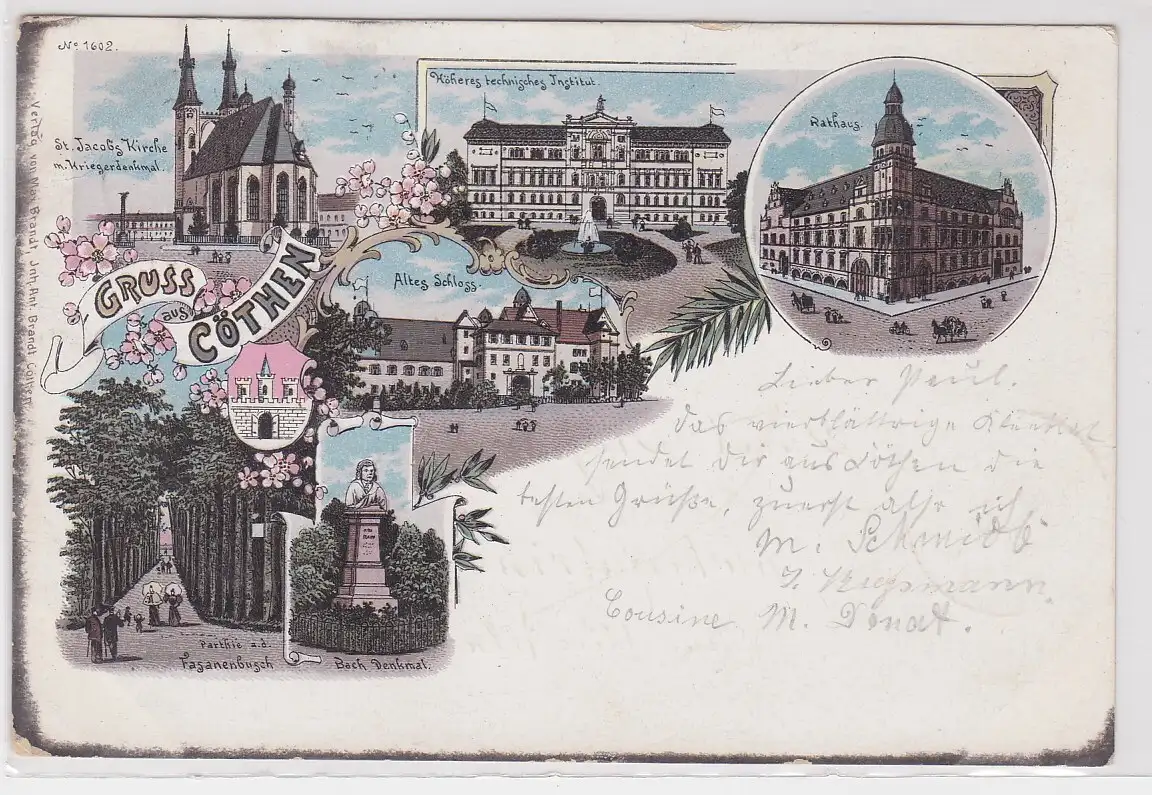 No 1602.
St. Jacobs Kirche
m. Kriegerdenkmal.
Höheres technisches Institut.
Rathaus.
Altes Schloss.
GRUSS
aus
CÖTHEN
Parthie a.d.
Fasanenbusch
Bach Denkmal.
Verlag von Max Brandt, Inh. Ant. Brandt Cöthen
Lieber Paul.
Das vierblättrige Kleeblat
sendet Dir aus Cöthen die
besten Grüße, zuerst also ich
M. Schmidt
Cousine M. Donat.